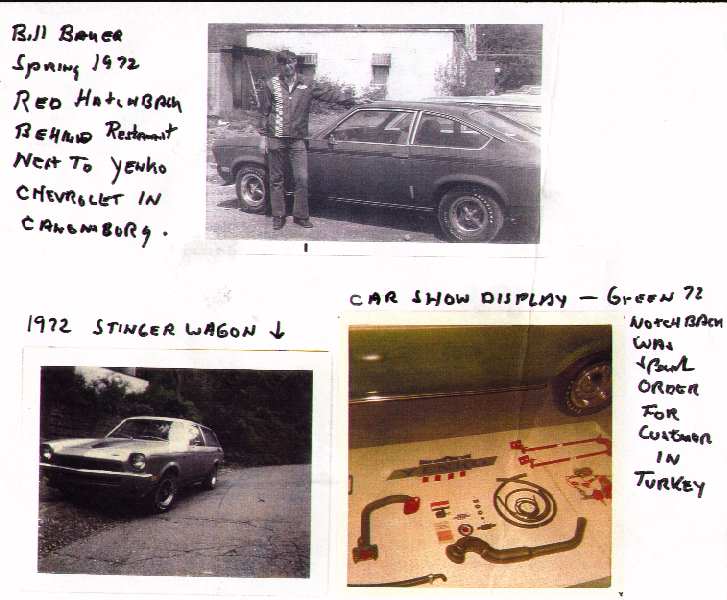 Bill Bauer
Spring 1972
RED HatchBack
BEHIND Restaurant
NEXT TO YENKO
CHEVROLET IN
CANONSBORG.
CAR SHOW DISPLAY — GrEEN 72
NOTCHBACK
WAS
ORDER
FOR
CUSTOMER
IN
TURKEY
1972 STINGER WAGON ↓